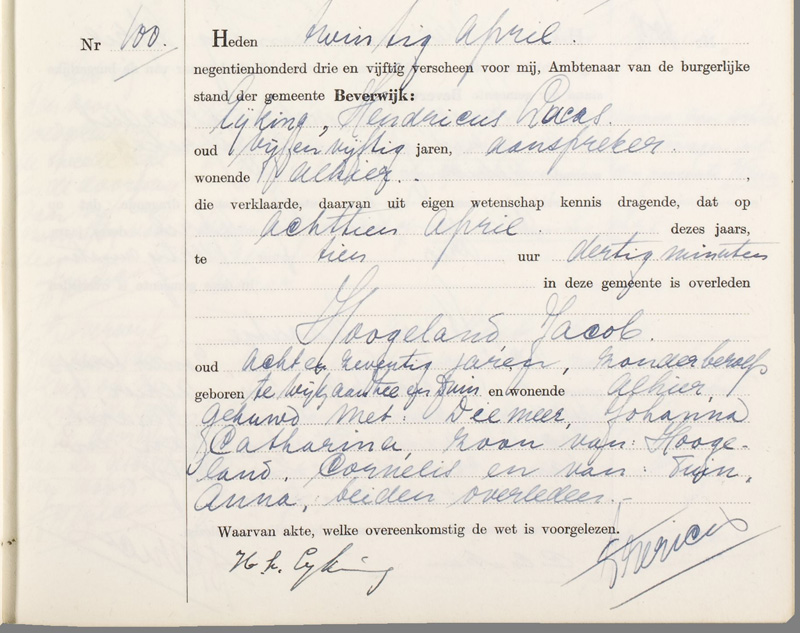 Nr 100.
Heden twintig April.
negentienhonderd drie en vijftig verscheen voor mij, Ambtenaar van de burgerlijke
stand der gemeente Beverwijk:
Eijking, Hendricus Lucas.
oud vijf en vijftig jaren, aanspreker.
wonende alhier. ,
die verklaarde, daarvan uit eigen wetenschap kennis dragende, dat op
achttien April. dezes jaars,
te tien uur dertig minuten
in deze gemeente is overleden
Hoogeland, Jacob.
oud acht en zeventig jaren, zonder beroep
geboren te Wijk aan Zee en Duin en wonende alhier,
gehuwd met: Deemeer, Johanna
Catharina, zoon van: Hooge-
land, Cornelis en van: Tuin,
Anna, beiden overleden.-
Waarvan akte, welke overeenkomstig de wet is voorgelezen.
H. L. Eyking